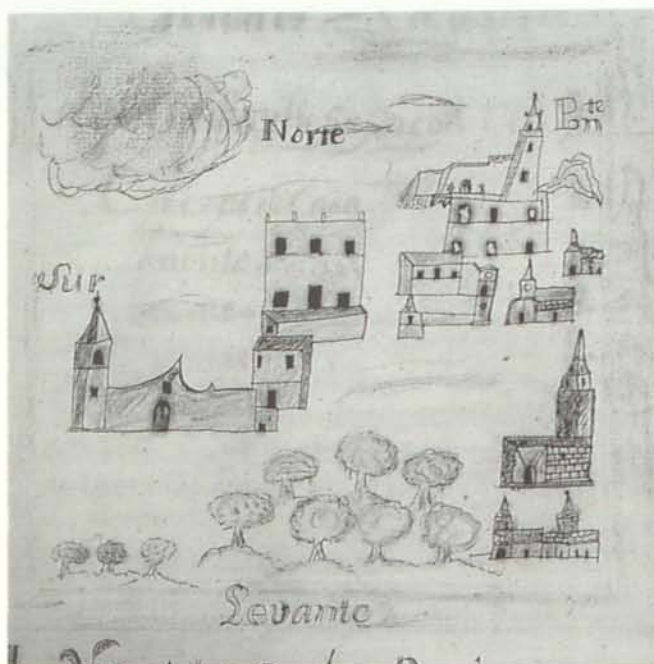 Norte
Pn.te
Sur
Levante